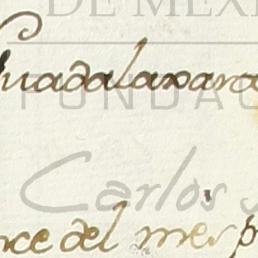 DE MÉXI
Guadalaxara
FUNDAC
Carlos S
nce del mes p